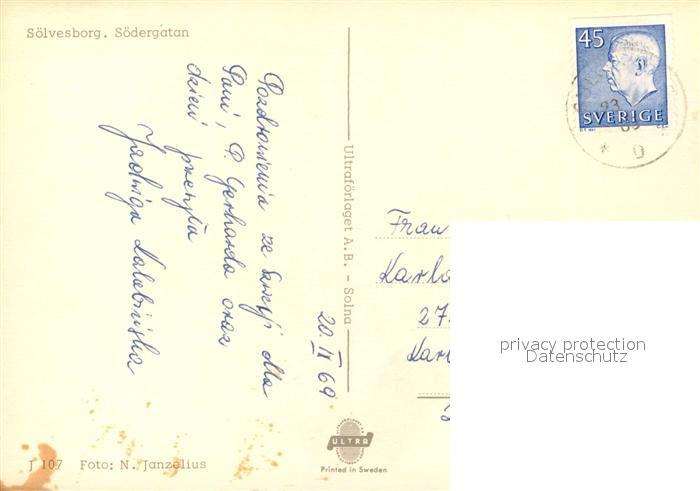 Sölvesborg. Södergatan
45
SVERIGE
23
D
Pozdrowienia ze Szwecji dla
Pani, P. Gerharda oraz
dzieci przesyła
Jadwiga
20.IX 69
Ultraförlaget A.B. - Solna
Frau
Karl
27
Kar
privacy protection
Datenschutz
ULTRA
Printed in Sweden
J 107 Foto: N. Janzelius